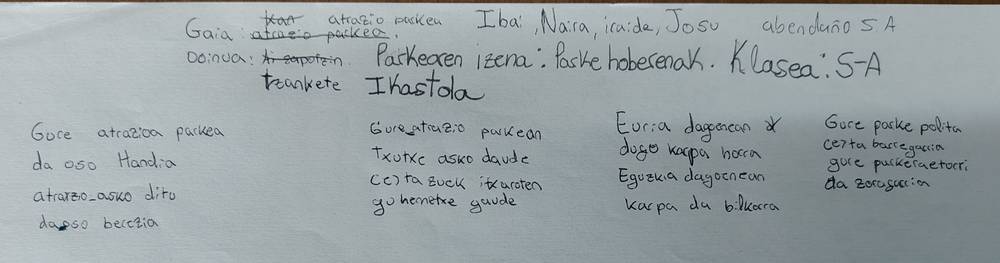 Gaia: atrazio parkea Ibai, Naira, iraide, Josu abendaño 5A
Doinua: Parkearen izena: Parke hoberenak. Klasea: 5-A
tzankete Ikastola
Gure atrazioa parkea
da oso Handia
atrarzio-asko ditu
da oso berezia
Gure atrazio parkean
Txutxe asko daude
ea zuek itxaroten
gu hemetxe gaude
Euria dagoenean
dugo karpa horra
Eguzkia dagoenean
karpa da bilkorra
Gure parke polita
barregarria
gure parkera etorri
da zoragarria